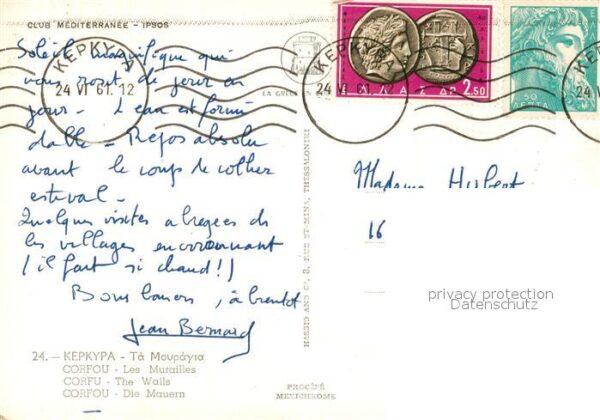 CLUB MÉDITERRANÉE - IPSOS
Soleil magnifique qui
vous rosit de jour en
jour - L'eau est formi
dable - Repos absolu
avant le coup de collier
estival -
Quelques visites abrégées ds
les villages environnant
(il fait si chaud!)
Bons baisers, à bientôt
Jean Bernard
24. — ΚΕΡΚΥΡΑ - Τὰ Μουράγια
CORFOU - Les Murailles
CORFU - The Walls
CORFOU - Die Mauern
ΚΕΡΚΥΡΑ
24 VI 61. 12
LA GRÈCE EN
HASSID AND C°, 8, RUE ST-MINA, THESSALONIKI
PROCÉDÉ
MEXICHROME
ΚΕΡΚΥΡΑ
24 VI 61.
ΕΛΛΑΣ ΔΡ 2.50
50
ΛΕΠΤΑ
24 V
Madame Hubert
16
privacy protection
Datenschutz